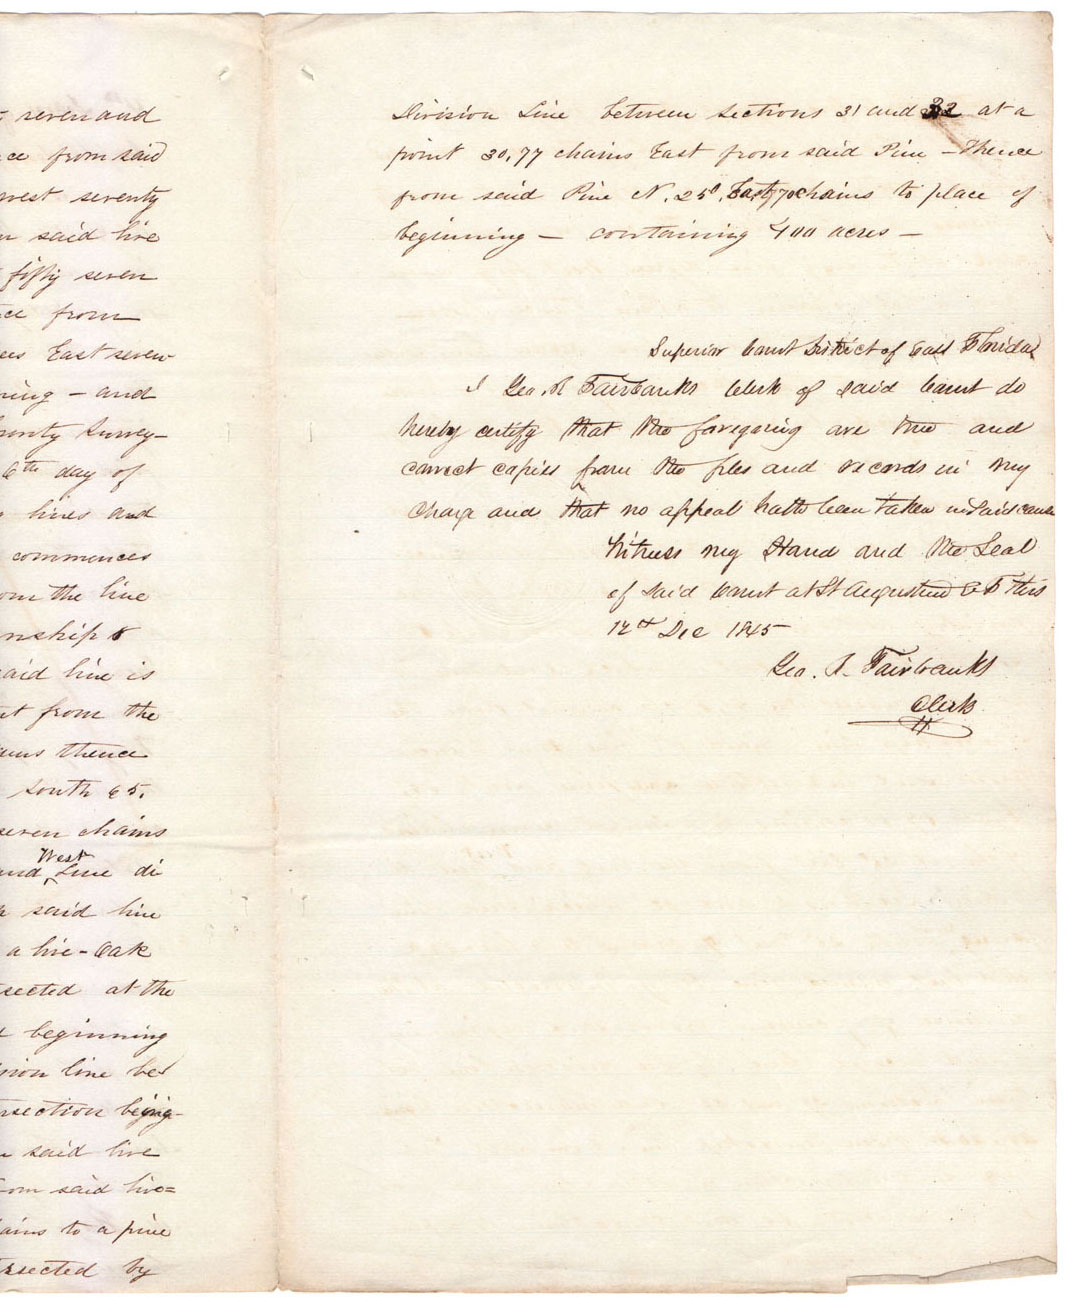 seven and
from said
west seventy
said live
fifty seven
from
East seven-
- and
County Survey-
6th day of
lines and
commences
from the line
Township 8
said line is
from the
thence
South 65.
seven chains
West
and Line di
said line
a live-Oak
at the
beginning
line be
said live
from said live=
to a pine
by
Division Line between sections 31 and 32 at a
point 30,77 chains East from said Pine - thence
from said Pine N. 25°. East, 70 chains to place of
beginning - containing 400 acres -
Superior Court District of East Florida
I Geo. R Fairbanks Clerk of said Court do
hereby certify that the foregoing are true and
correct copies from the files and records in my
charge and that no appeal hath been taken in said cause
Witness my Hand and the Seal
of said Court at St Augustine E F this
12th Dec 1845
Geo. R. Fairbanks
Clerk